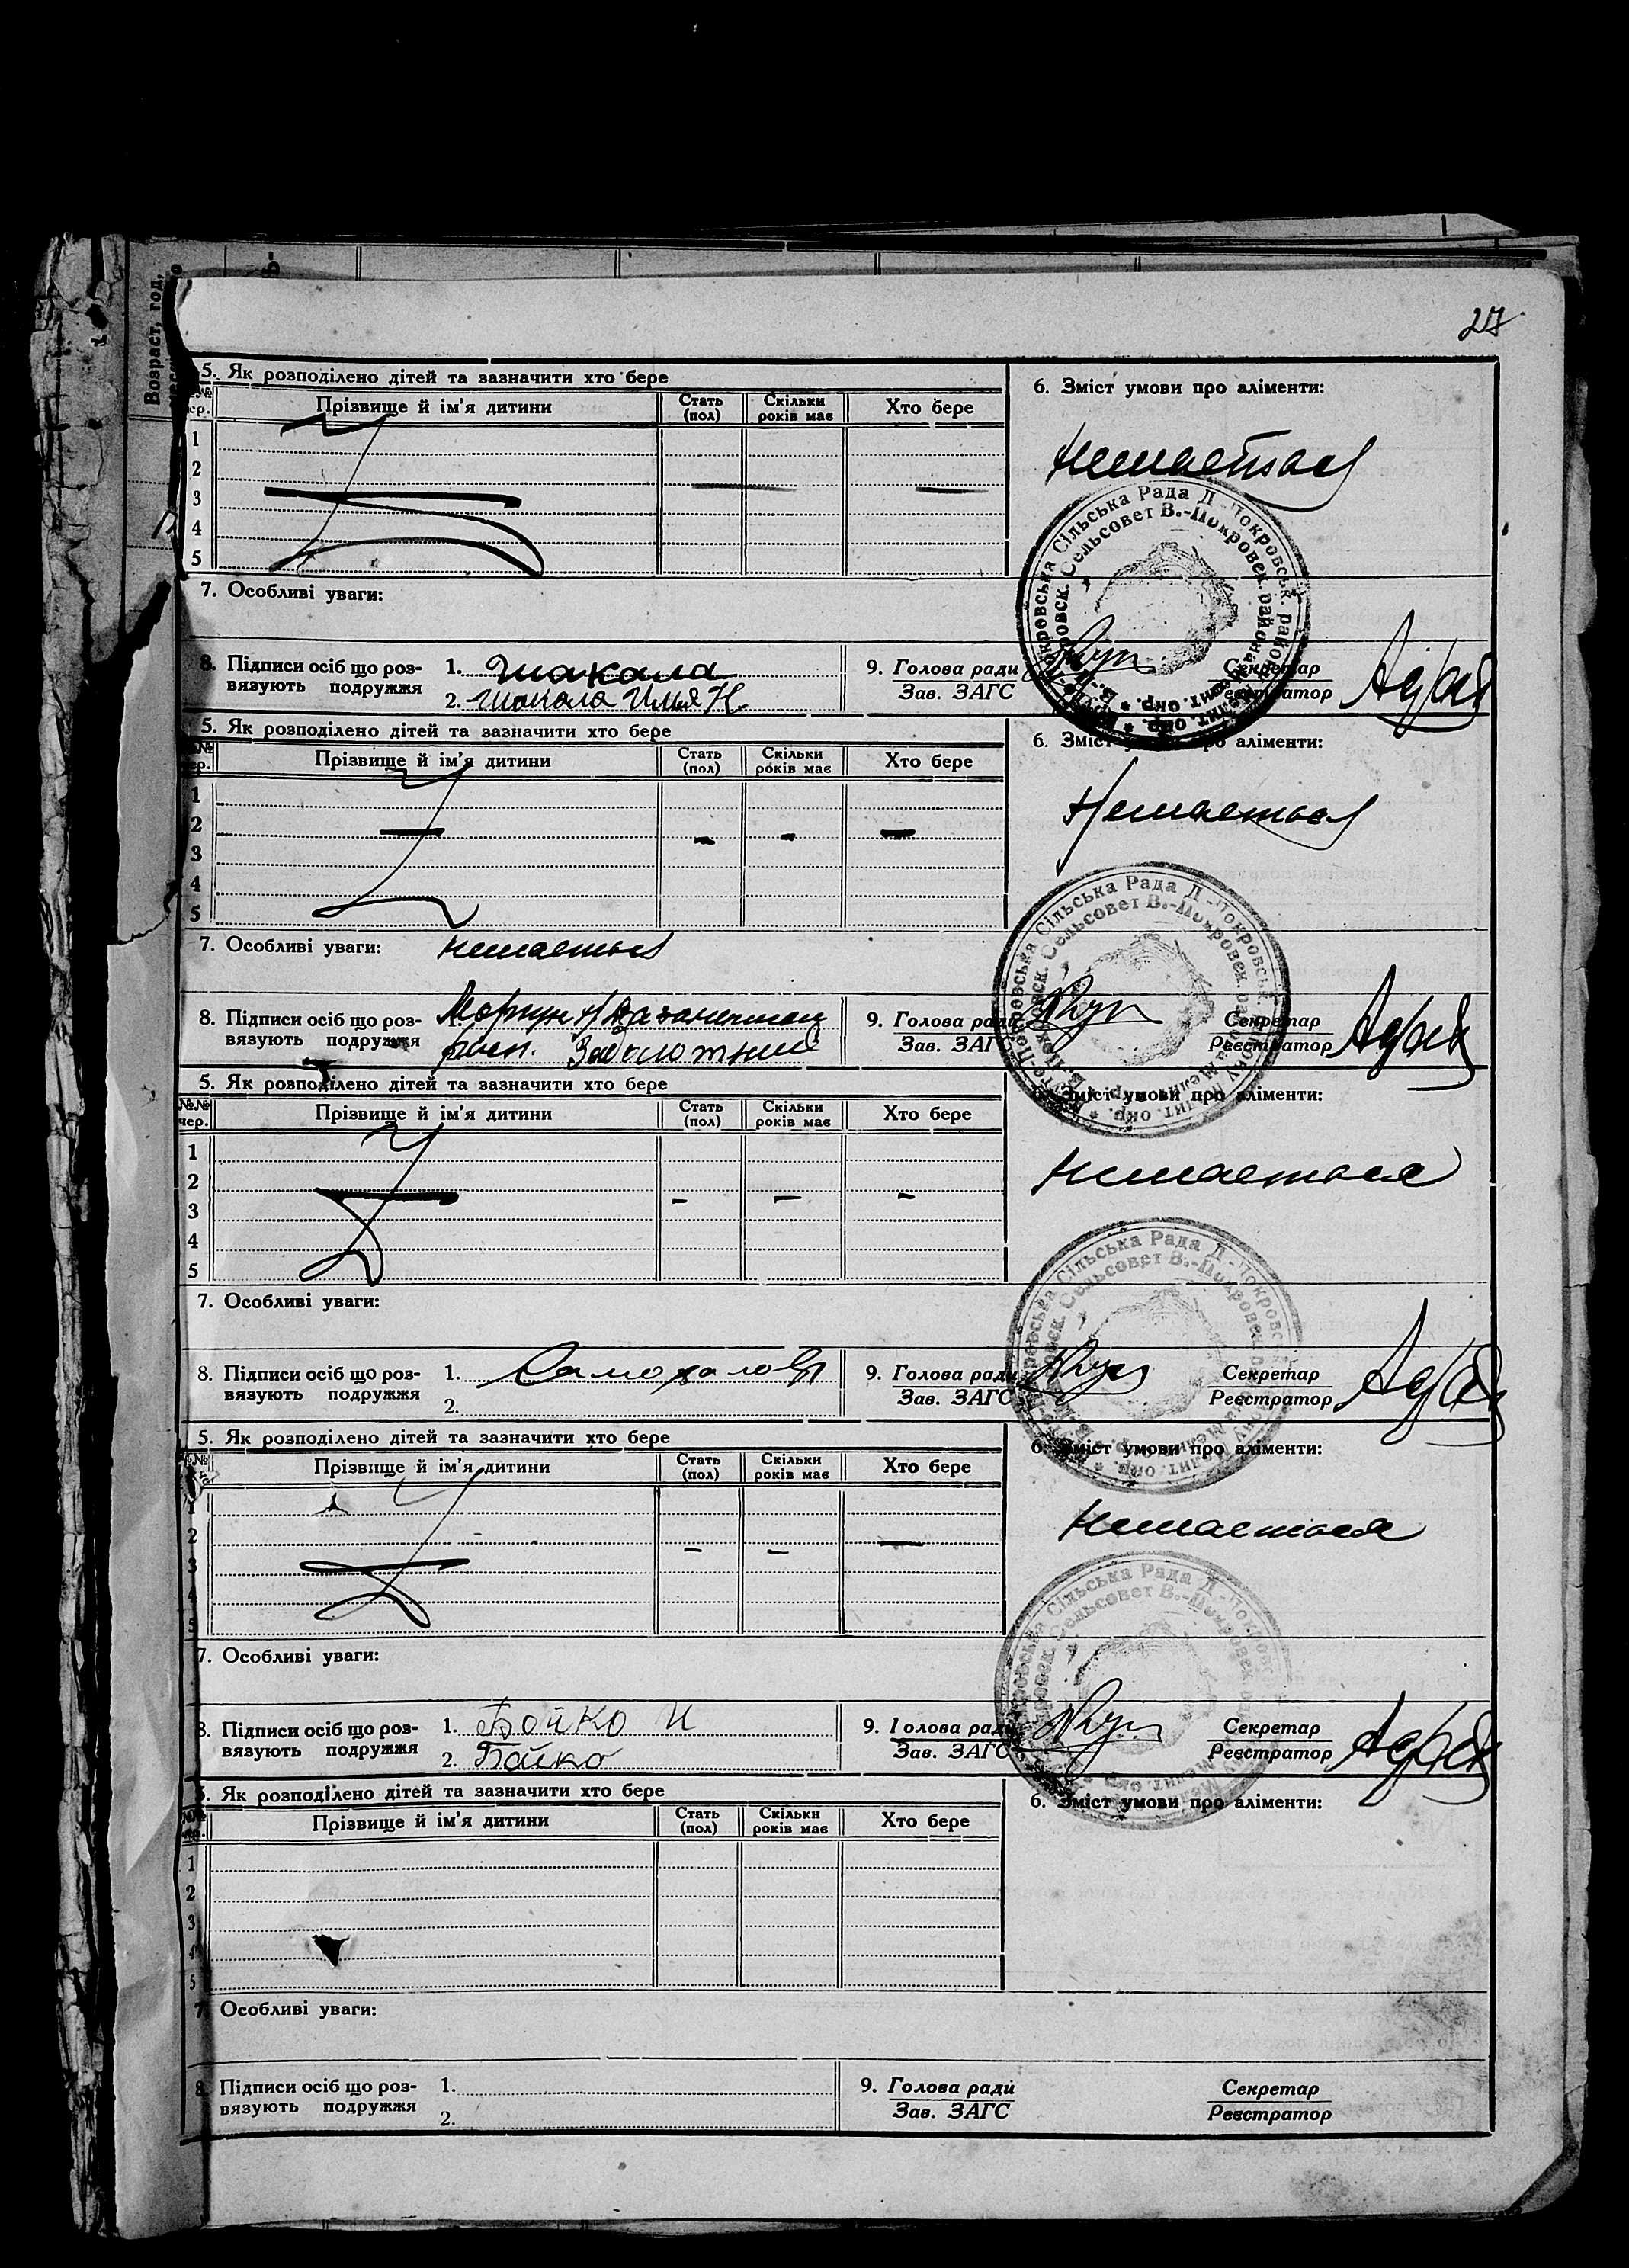 27
Возраст, год,
5. Як розподілено дітей та зазначити хто бере
Прізвище й ім'я дитини Стать (пол) Скільки років має Хто бере
1
2
3
4
5
6. Зміст умови про аліменти:
Немаеться
7. Особливі уваги:
8. Підписи осіб що роз-
вязують подружжя
1. Шакала
2. Шакала Илья Н.
9. Голова ради
Зав. ЗАГС
Секретар
Реєстратор
Сільська Рада
Сельсовет В.-Покровск. района
5. Як розподілено дітей та зазначити хто бере
Прізвище й ім'я дитини Стать (пол) Скільки років має Хто бере
1
2
3
4
5
6. Зміст умови про аліменти:
Немаеться
7. Особливі уваги: немаеться
8. Підписи осіб що роз-
вязують подружжя
1.
Заболотний
9. Голова ради
Зав. ЗАГС
Секретар
Реєстратор
Сільська Рада
Сельсовет В.-Покровск. района
5. Як розподілено дітей та зазначити хто бере
№№ чер. Прізвище й ім'я дитини Стать (пол) Скільки років має Хто бере
1
2
3
4
5
6. Зміст умови про аліменти:
Немаеться
7. Особливі уваги:
8. Підписи осіб що роз-
вязують подружжя
1.
2.
9. Голова ради
Зав. ЗАГС
Секретар
Реєстратор
Сільська Рада
Сельсовет В.-Покровск.
5. Як розподілено дітей та зазначити хто бере
Прізвище й ім'я дитини Стать (пол) Скільки років має Хто бере
1
2
3
4
5
6. Зміст умови про аліменти:
Немаеться
7. Особливі уваги:
8. Підписи осіб що роз-
вязують подружжя
1. Бойко И
2. Бойко
9. Голова ради
Зав. ЗАГС
Секретар
Реєстратор
Сільська Рада
Сельсовет В.-Покровск.
5. Як розподілено дітей та зазначити хто бере
Прізвище й ім'я дитини Стать (пол) Скільки років має Хто бере
1
2
3
4
5
6. Зміст умови про аліменти:
7. Особливі уваги:
8. Підписи осіб що роз-
вязують подружжя
1.
2.
9. Голова ради
Зав. ЗАГС
Секретар
Реєстратор